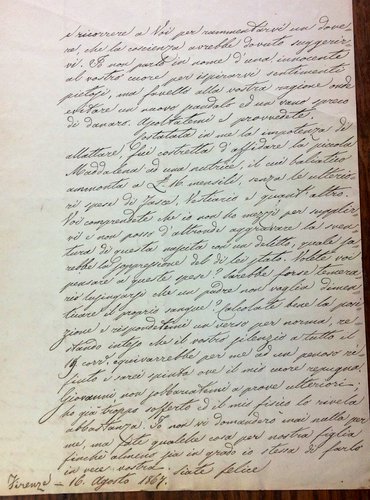 e ricorrere a Voi per rammentarvi un dove-
re, che la coscienza avrebbe dovuto suggerir-
vi. Io non parlo in nome d'una innocente
al vostro cuore per ispirarvi sentimenti
pietosi, ma favello alla vostra ragione onde
evitare un nuovo scandalo ed un vano spreco
di danaro. Ascoltatemi e provvedete.
Constatata in me la impotenza di
allattare, fui costretta d'affidare la piccola
Maddalena ad una nutrice, il cui baliatico
ammonta a £. 16 mensili, senza le ulterio-
ri spese di fasce, vestiario e quant'altro.
Voi comprendete che io non ho mezzi per supplir-
vi e non posso d'altronde aggravare la sven-
tura di questa nascita con un delitto, quale sa-
rebbe la soppressione del di lei stato. Volete voi
pensare a queste spese? Sarebbe forse temera-
rio lusingarsi che un padre non voglia dimen-
ticare il proprio sangue? Calcolate bene la posi-
zione e rispondetemi un verso per norma, re-
stando inteso che il vostro silenzio a tutto il
19 corr.e equivarrebbe per me ad un penoso ri-
fiuto e sarei spinta ove il mio cuore repugna.
Giovanni non sobbarcatemi a prove ulteriori;
ho già troppo sofferto ed il mio fisico lo rivela
abbastanza. Io non vi domanderò mai nulla per
me, ma fate qualche cosa per nostra figlia
finchè almeno sia in grado io stessa di farlo
in vece vostra. Siate felice
Firenze - 16. Agosto 1867.